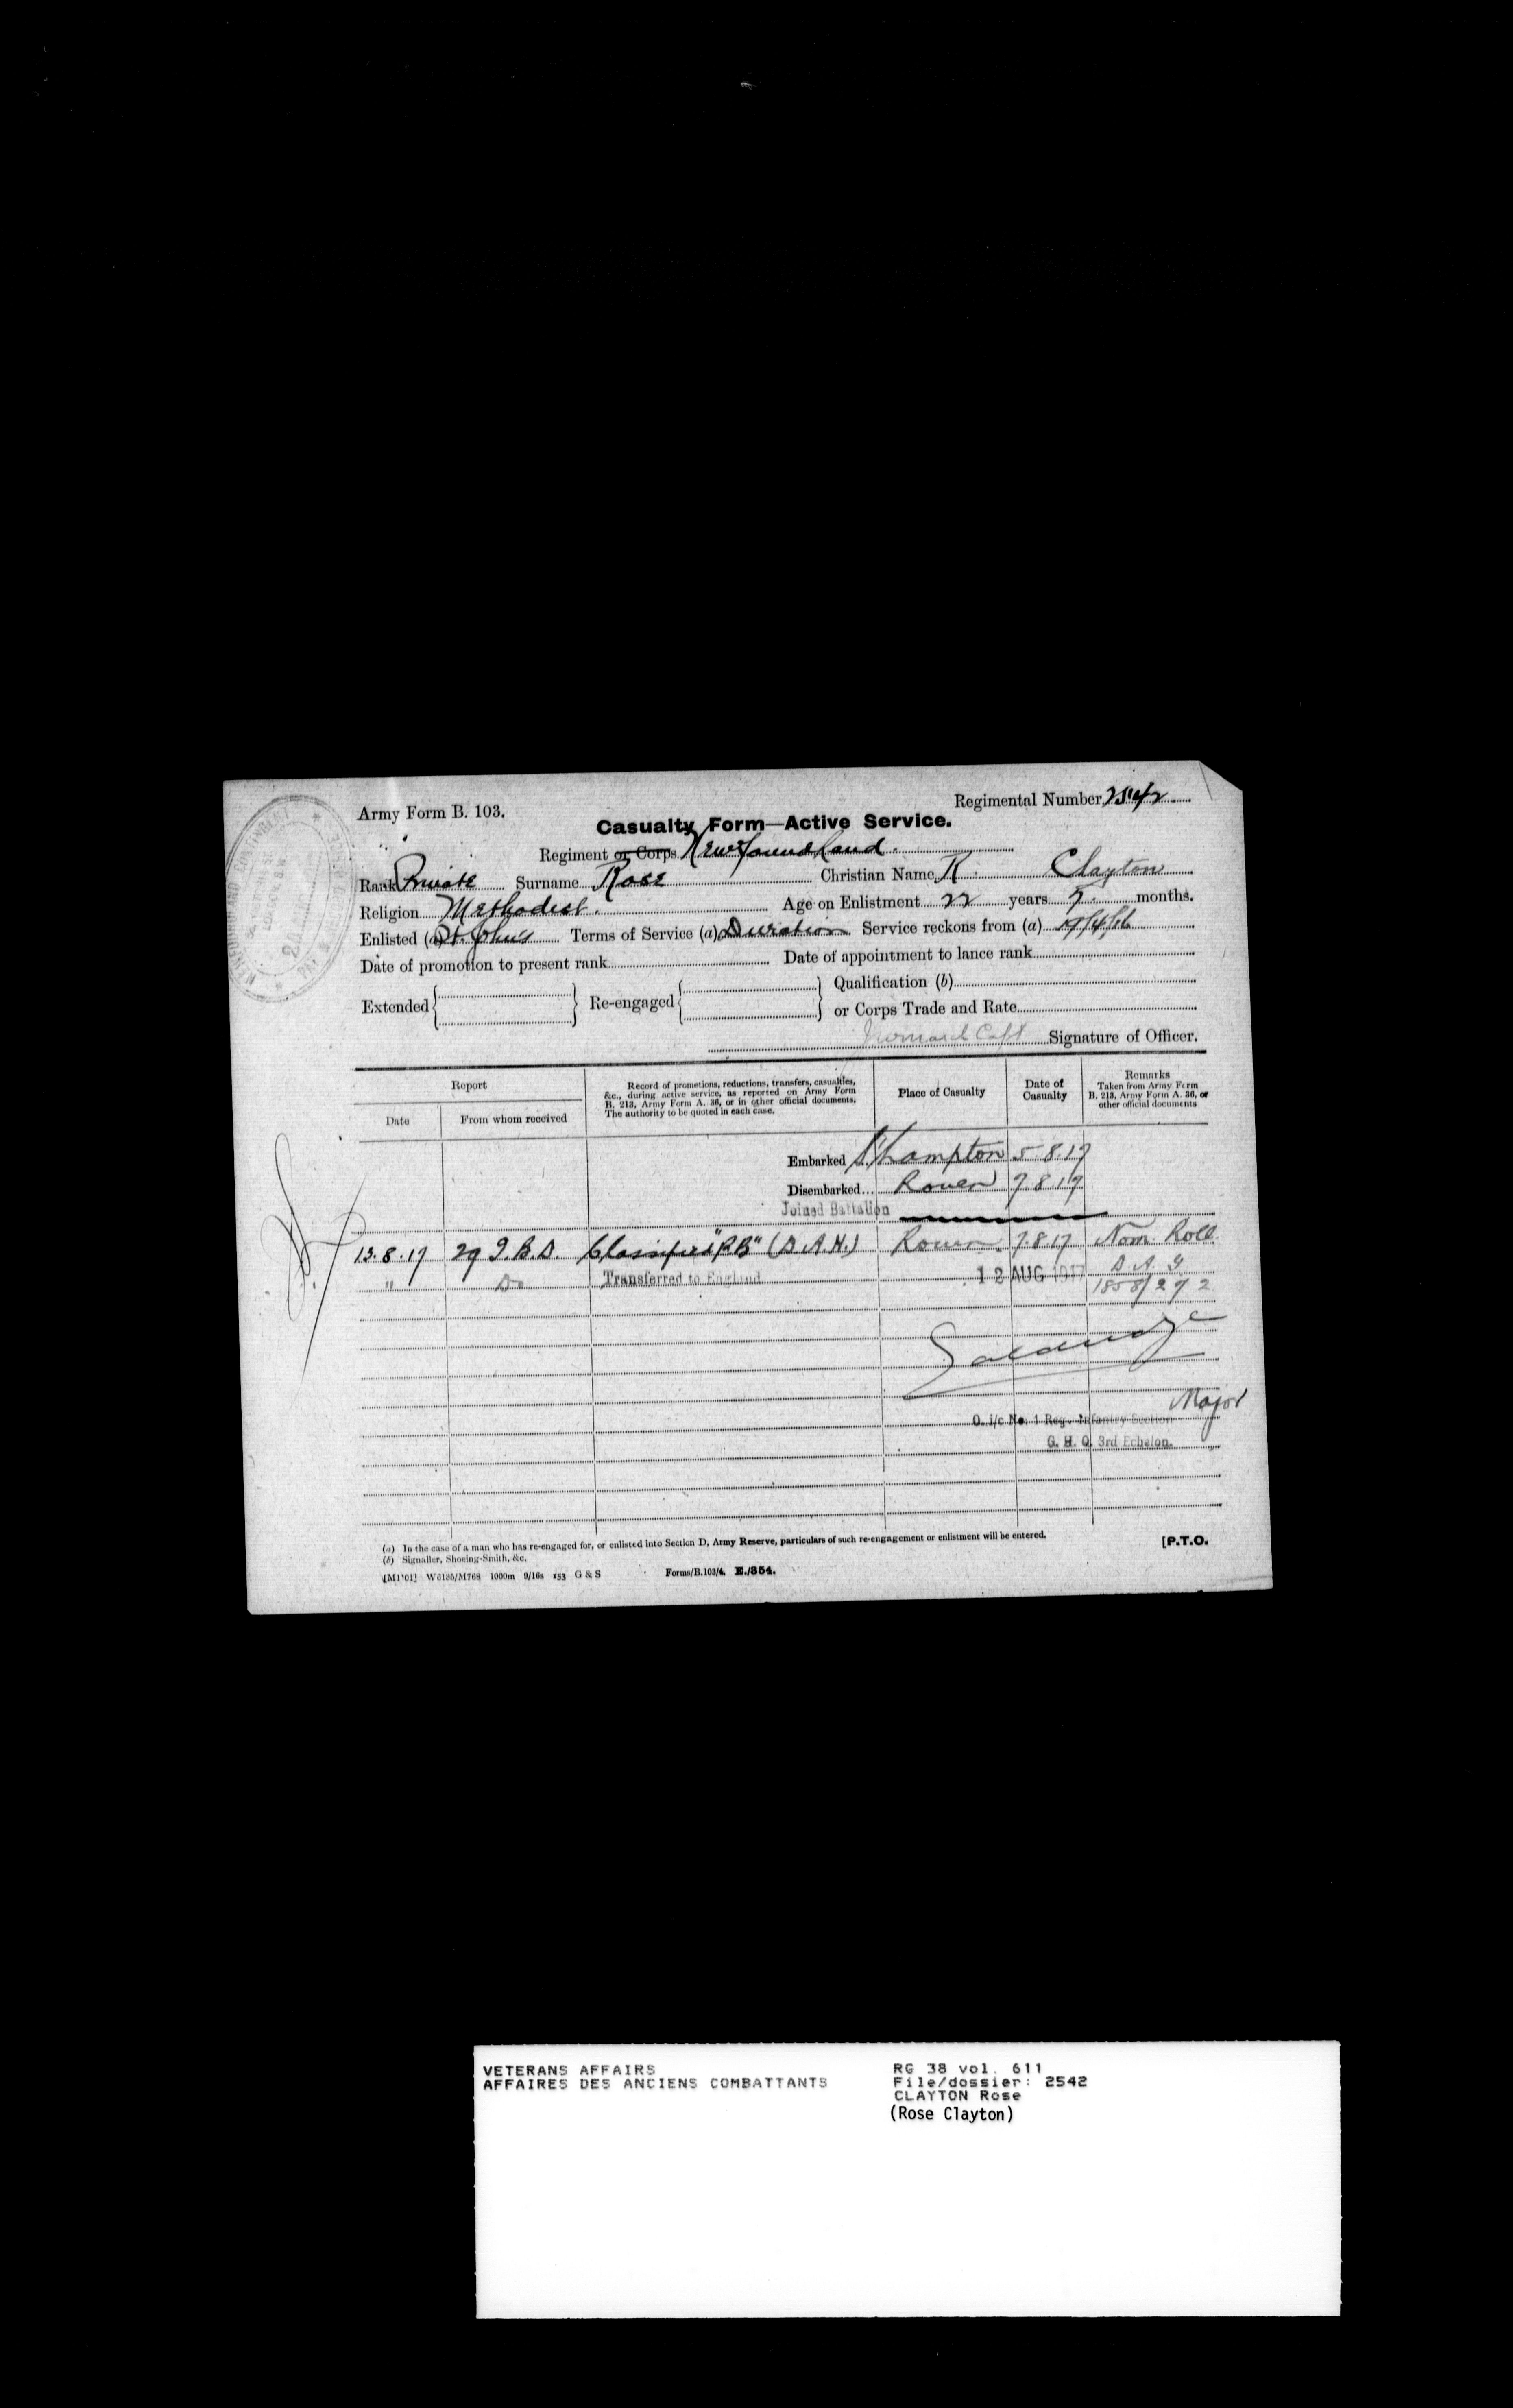 Army Form B. 103.
Regimental Number 2542
Casualty Form—Active Service.
Regiment or Corps Newfoundland.
Rank Private Surname Rose Christian Name R. Clayton
Religion Methodist. Age on Enlistment 22 years 5 months.
Enlisted (a) St. John's Terms of Service (a) Duration Service reckons from (a)
Date of promotion to present rank Date of appointment to lance rank
Extended Re-engaged Qualification (b)
or Corps Trade and Rate
Capt Signature of Officer.
Report
Date From whom received
Record of promotions, reductions, transfers, casualties,
&c., during active service, as reported on Army Form
B. 213, Army Form A. 36, or in other official documents.
The authority to be quoted in each case.
Place of Casualty
Date of
Casualty
Remarks
Taken from Army Form
B. 213, Army Form A. 36, or
other official documents
Embarked S'hampton 5.8.17
Disembarked... Rouen 7.8.17
Joined Battalion
13.8.17 29 I.B.D. Classified "P.B" (D.A.H.) Rouen. 7.8.17 Nom Roll
" Do Transferred to England 12 AUG 1917 D.A.G
1858/272
Major
O. i/c No. 1 Reg. Infantry Section
G. H. Q. 3rd Echelon.
(a) In the case of a man who has re-engaged for, or enlisted into Section D, Army Reserve, particulars of such re-engagement or enlistment will be entered.
(b) Signaller, Shoeing-Smith, &c.
[P.T.O.
1000m 9/16s 153 G & S Forms/B.103/4. E./354.
VETERANS AFFAIRS
AFFAIRES DES ANCIENS COMBATTANTS
RG 38 vol. 611
File/dossier: 2542
CLAYTON Rose
(Rose Clayton)